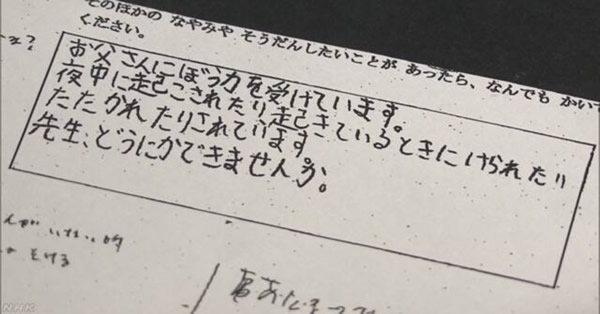 そのほかの なやみや そうだんしたいことが あったら、なんでも かいて
ください。
お父さんにぼう力を受けています。
夜中に起こされたり、起きているときにけられたり
たたかれたりされています。
先生、どうにかできませんか。
NHK